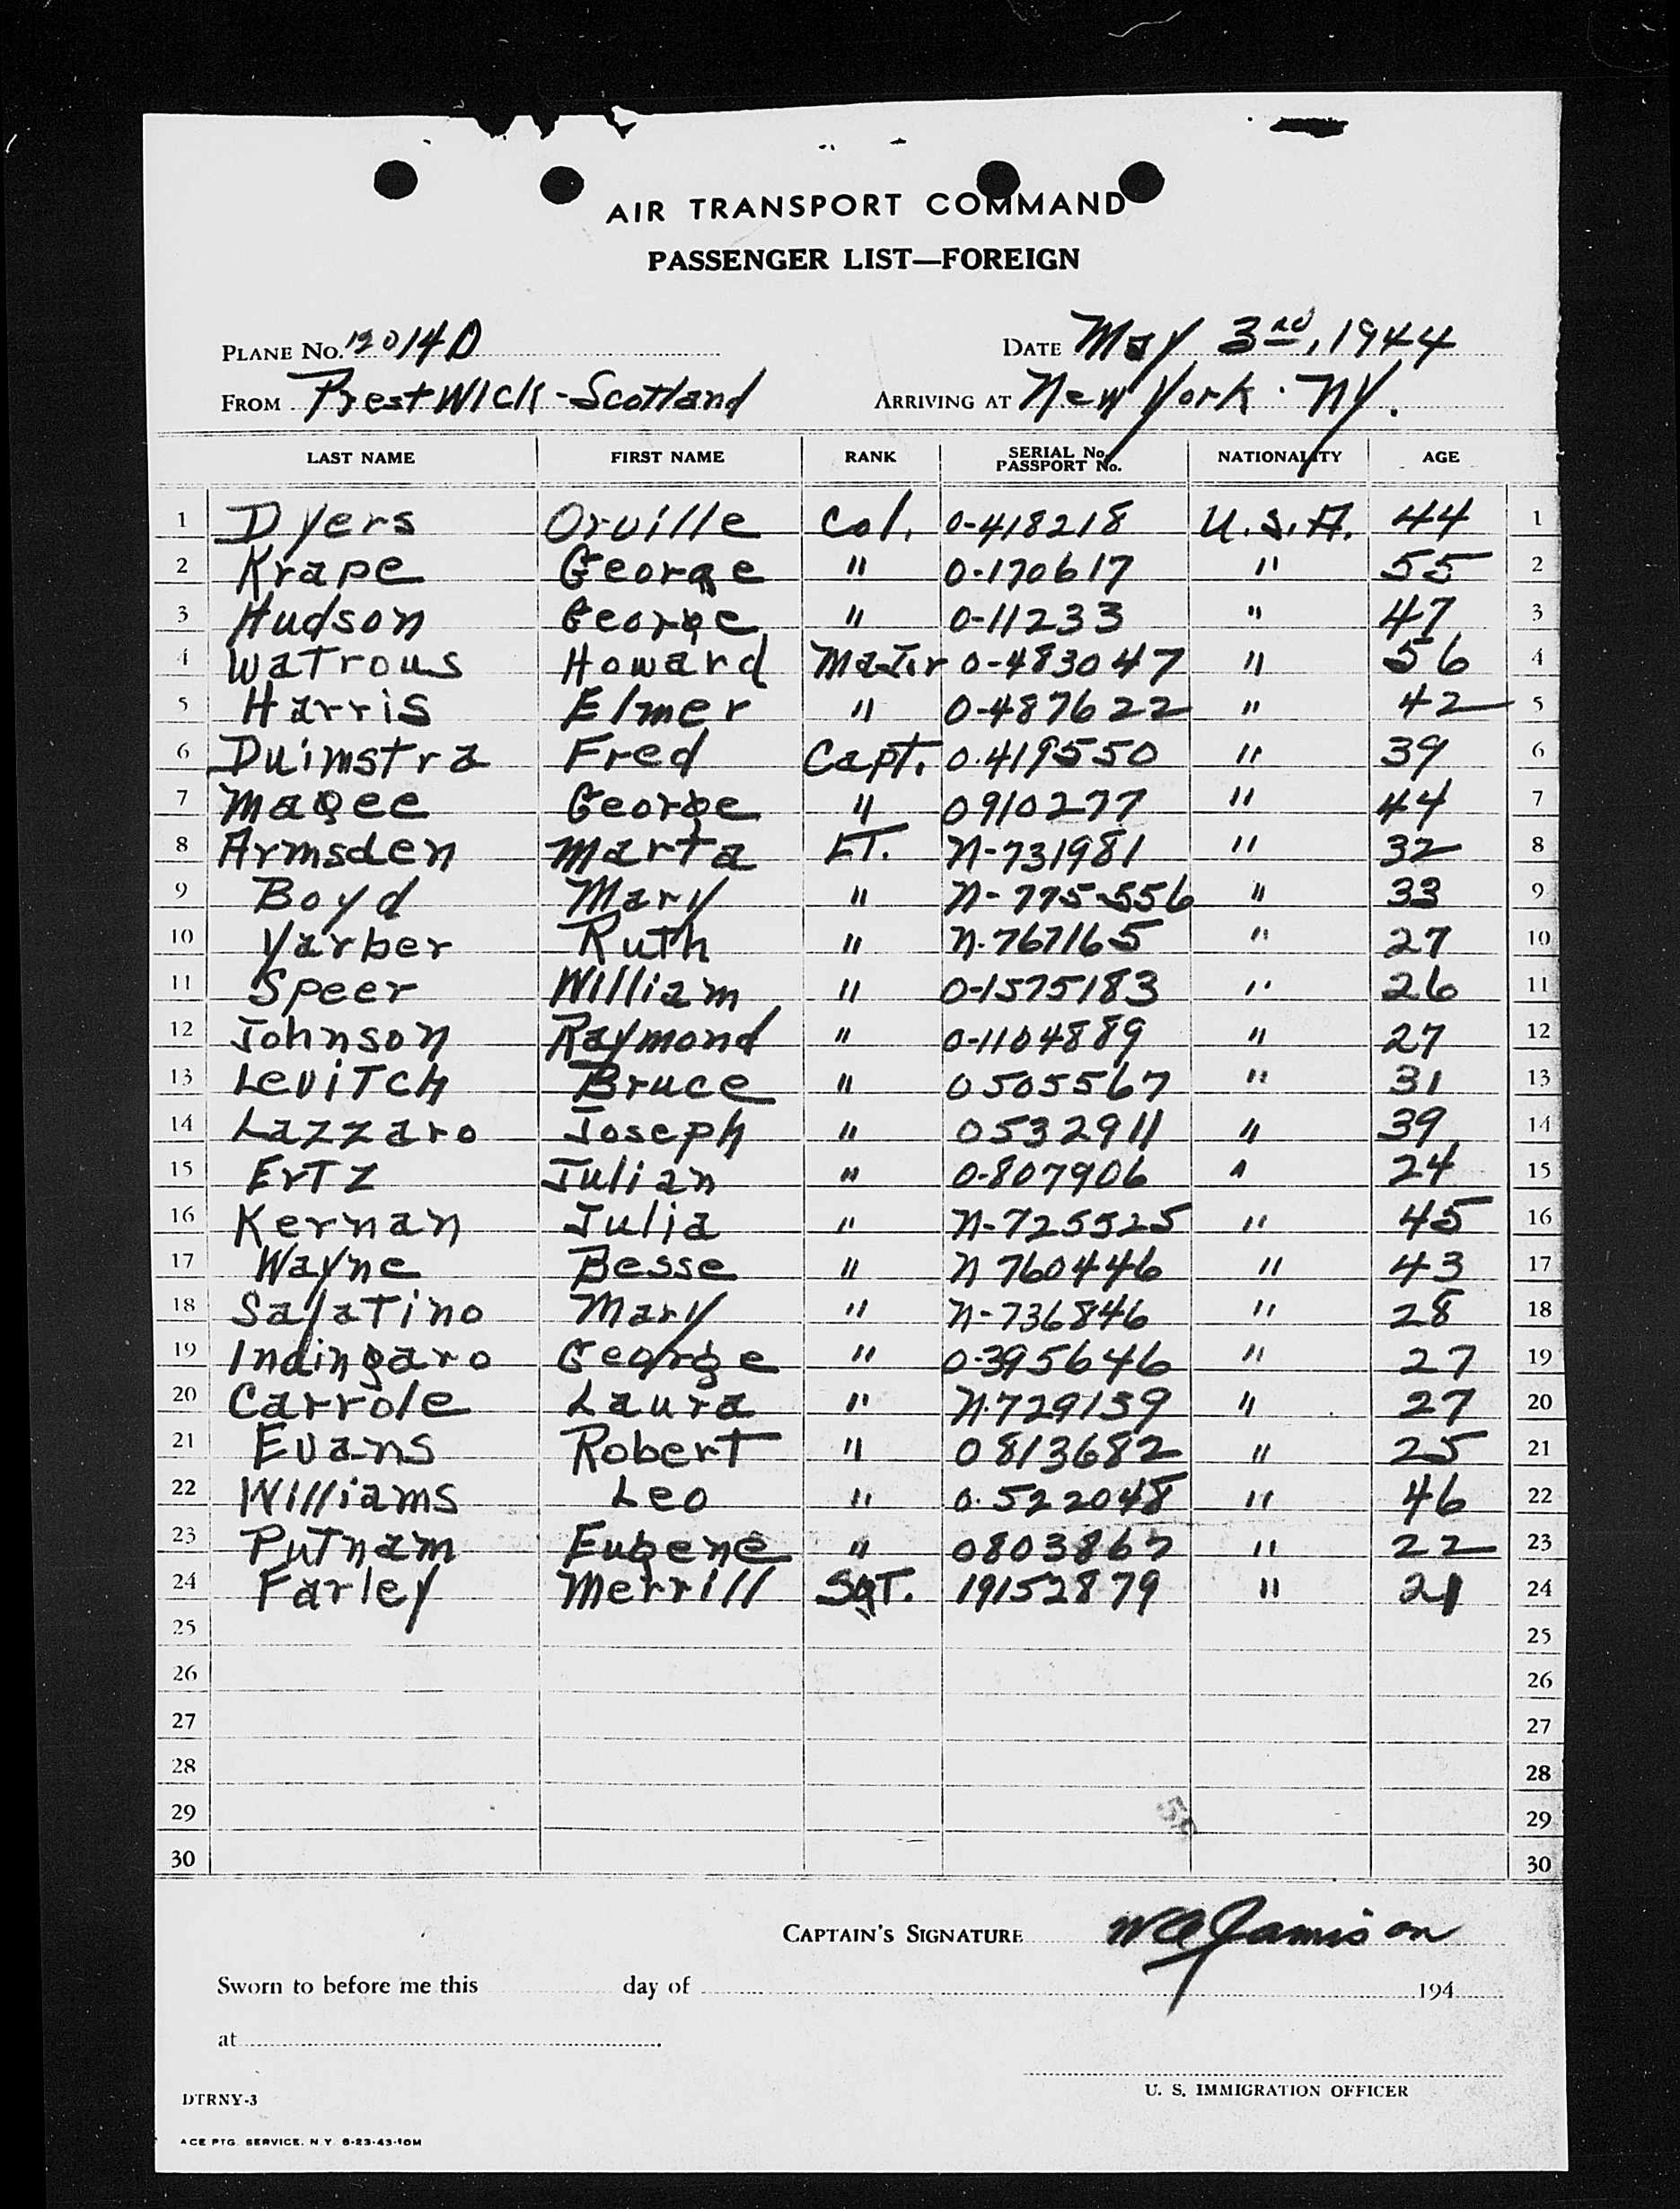 AIR TRANSPORT COMMAND
PASSENGER LIST—FOREIGN
PLANE No. 12014D DATE May 3rd, 1944
FROM PrestWick-Scotland ARRIVING AT New York. NY.
LAST NAME FIRST NAME RANK SERIAL No. PASSPORT No. NATIONALITY AGE
1 Dyers Orville Col. 0-418218 U.S.A. 44 1
2 Krape George " 0-170617 " 55 2
3 Hudson George " 0-11233 " 47 3
4 Watrous Howard Major 0-483047 " 56 4
5 Harris Elmer " 0-487622 " 42 5
6 Duimstra Fred Capt. 0.419550 " 39 6
7 Magee George " 0910277 " 44 7
8 Armsden Marta LT. N-731981 " 32 8
9 Boyd Mary " N-775-556 " 33 9
10 Yarber Ruth " N.767165 " 27 10
11 Speer William " 0-1575183 " 26 11
12 Johnson Raymond " 0-1104889 " 27 12
13 Levitch Bruce " 0505567 " 31 13
14 Lazzaro Joseph " 0532911 " 39 14
15 Ertz Julian " 0-807906 " 24 15
16 Kernan Julia " N-725525 " 45 16
17 Wayne Besse " N760446 " 43 17
18 Salatino Mary " N-736846 " 28 18
19 Indingaro George " 0-395646 " 27 19
20 Carrole Laura " N.729159 " 27 20
21 Evans Robert " 0813682 " 25 21
22 Williams Leo " 0.522048 " 46 22
23 Putnam Eugene " 0803867 " 22 23
24 Farley Merrill SgT. 19152879 " 21 24
25 25
26 26
27 27
28 28
29 29
30 30
CAPTAIN'S SIGNATURE WA Jamison
Sworn to before me this day of 194
at
U. S. IMMIGRATION OFFICER
DTRNY-3
ACE PTG. SERVICE. N.Y. 6-23-43-10M